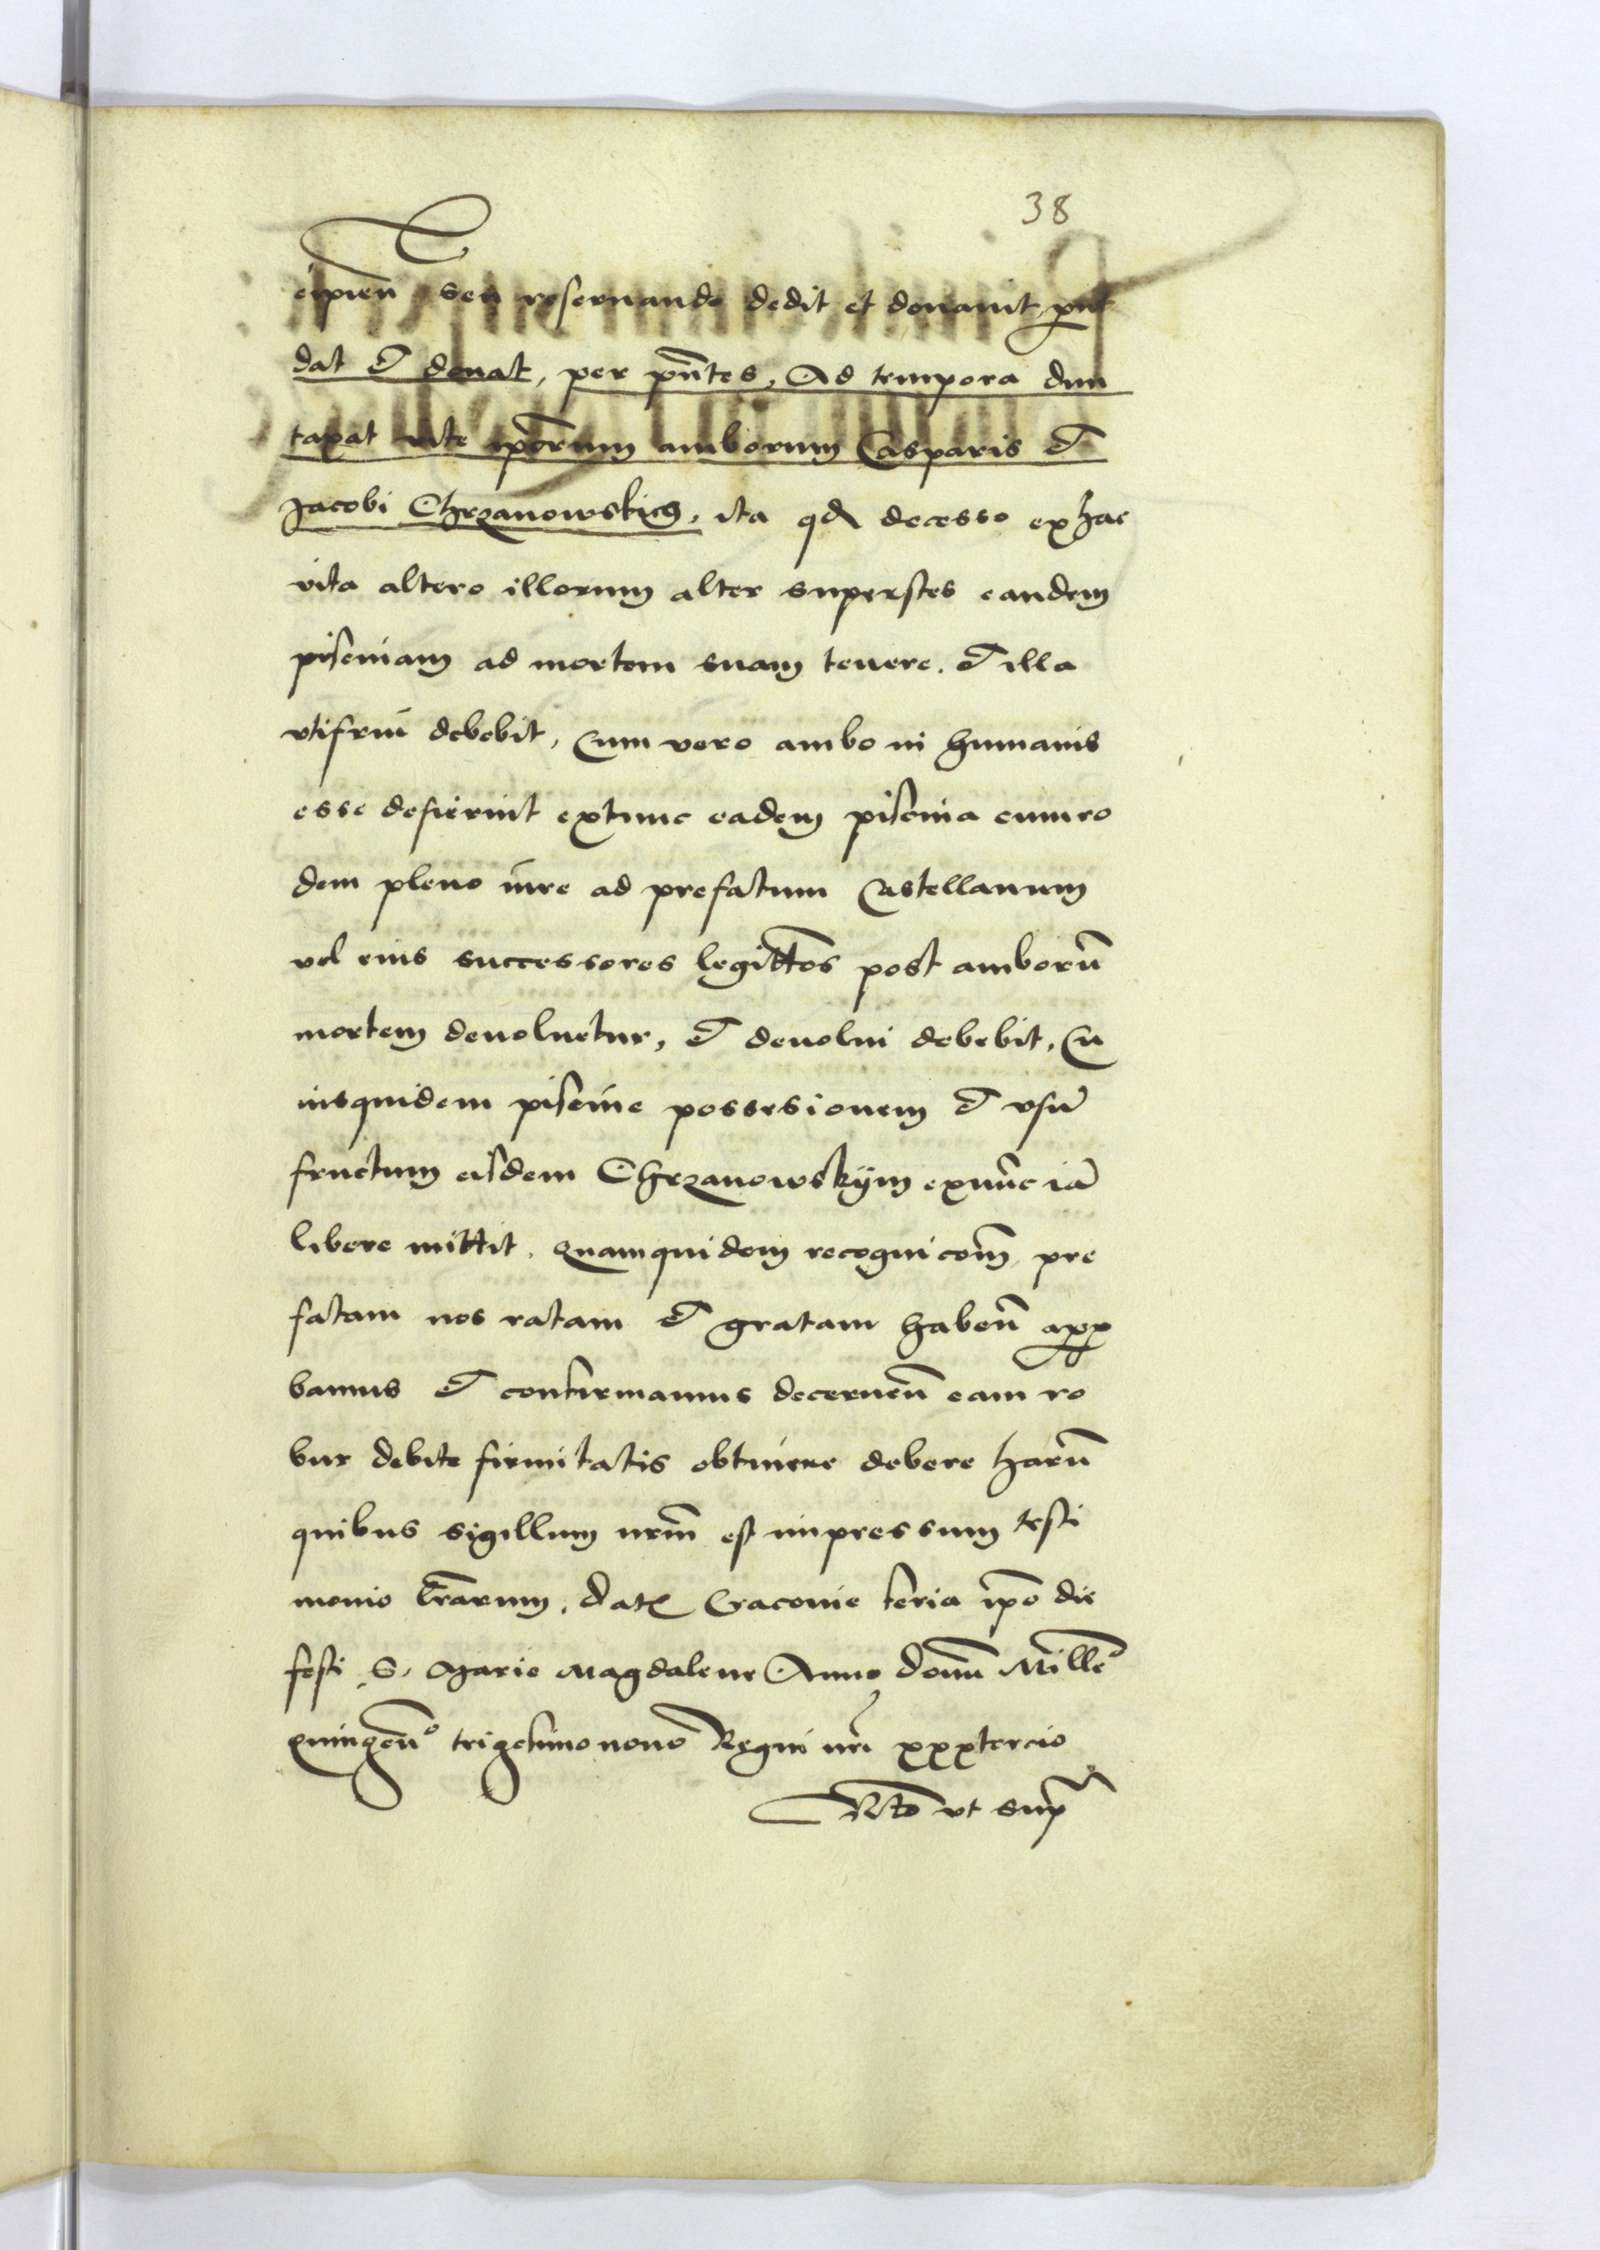 38
cipien̄ seu reseruando dedit et donauit, put̄
dat et donat, per pn̄tes, Ad tempora dun
taxat vite ip̄orum amborum Casparis et
Jacobi Chrzanowskich, ita qd decesso ex hac
vita altero illorum alter superstes eandem
piscinam ad mortem suam tenere. et illa
vtifrui debebit, Cum vero ambo in humanis
esse desierint extunc eadem piscina cum eo
dem pleno iure ad prefatum Castellanum
vel eius successores legittōs post amborū
mortem deuoluetur, et deuolui debebit, Cu
iusquidem piscine possesionem et vsū
fructum eisdem Chrzanowskym exnūc iā
libere mittit, Quamquidem recognicōm pre
fatam nos ratam et gratam habeñ appro
bamus et confirmamus decerneñ eam ro
bur debite firmitatis obtinere debere harū
quibus sigillum nr̄m est impressum testi
monio lr̄arum, Dat Cracouie feria ip̄o die
festi S. Marie Magdalene Anno Domī Mille
quingeñº trigesimo nono Regni nr̄i xxxtercio
Rtō vt sup